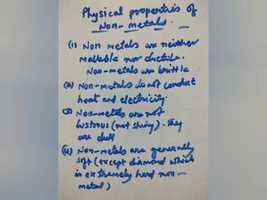 Physical properties of
Non-metals.
(i) Non metals are neither
malleable nor ductile.
Non-metals are brittle
(ii) Non-metals do not conduct
heat and electricity.
Non-metals are not
lustrous (not shiny). They
are dull
(iv) Non-metals are generally
soft (except diamond which
is extremely hard non-
metal)